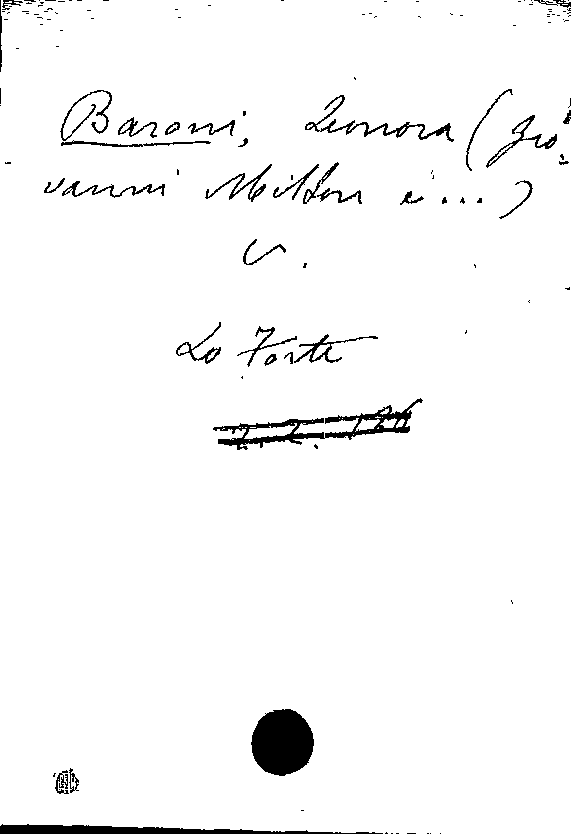 Baroni, Leonora (Gio-
vanni Milton e ...)
v.
Lo Forte
2. 2. 126